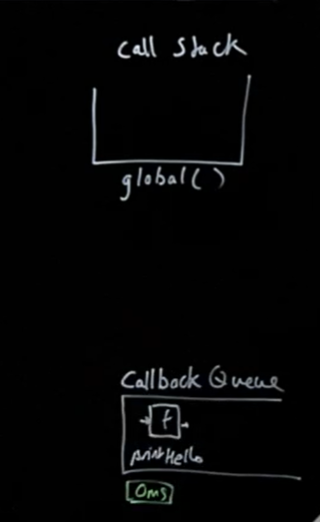 Call Stack
global()
Callback Queue
f
printHello
0ms